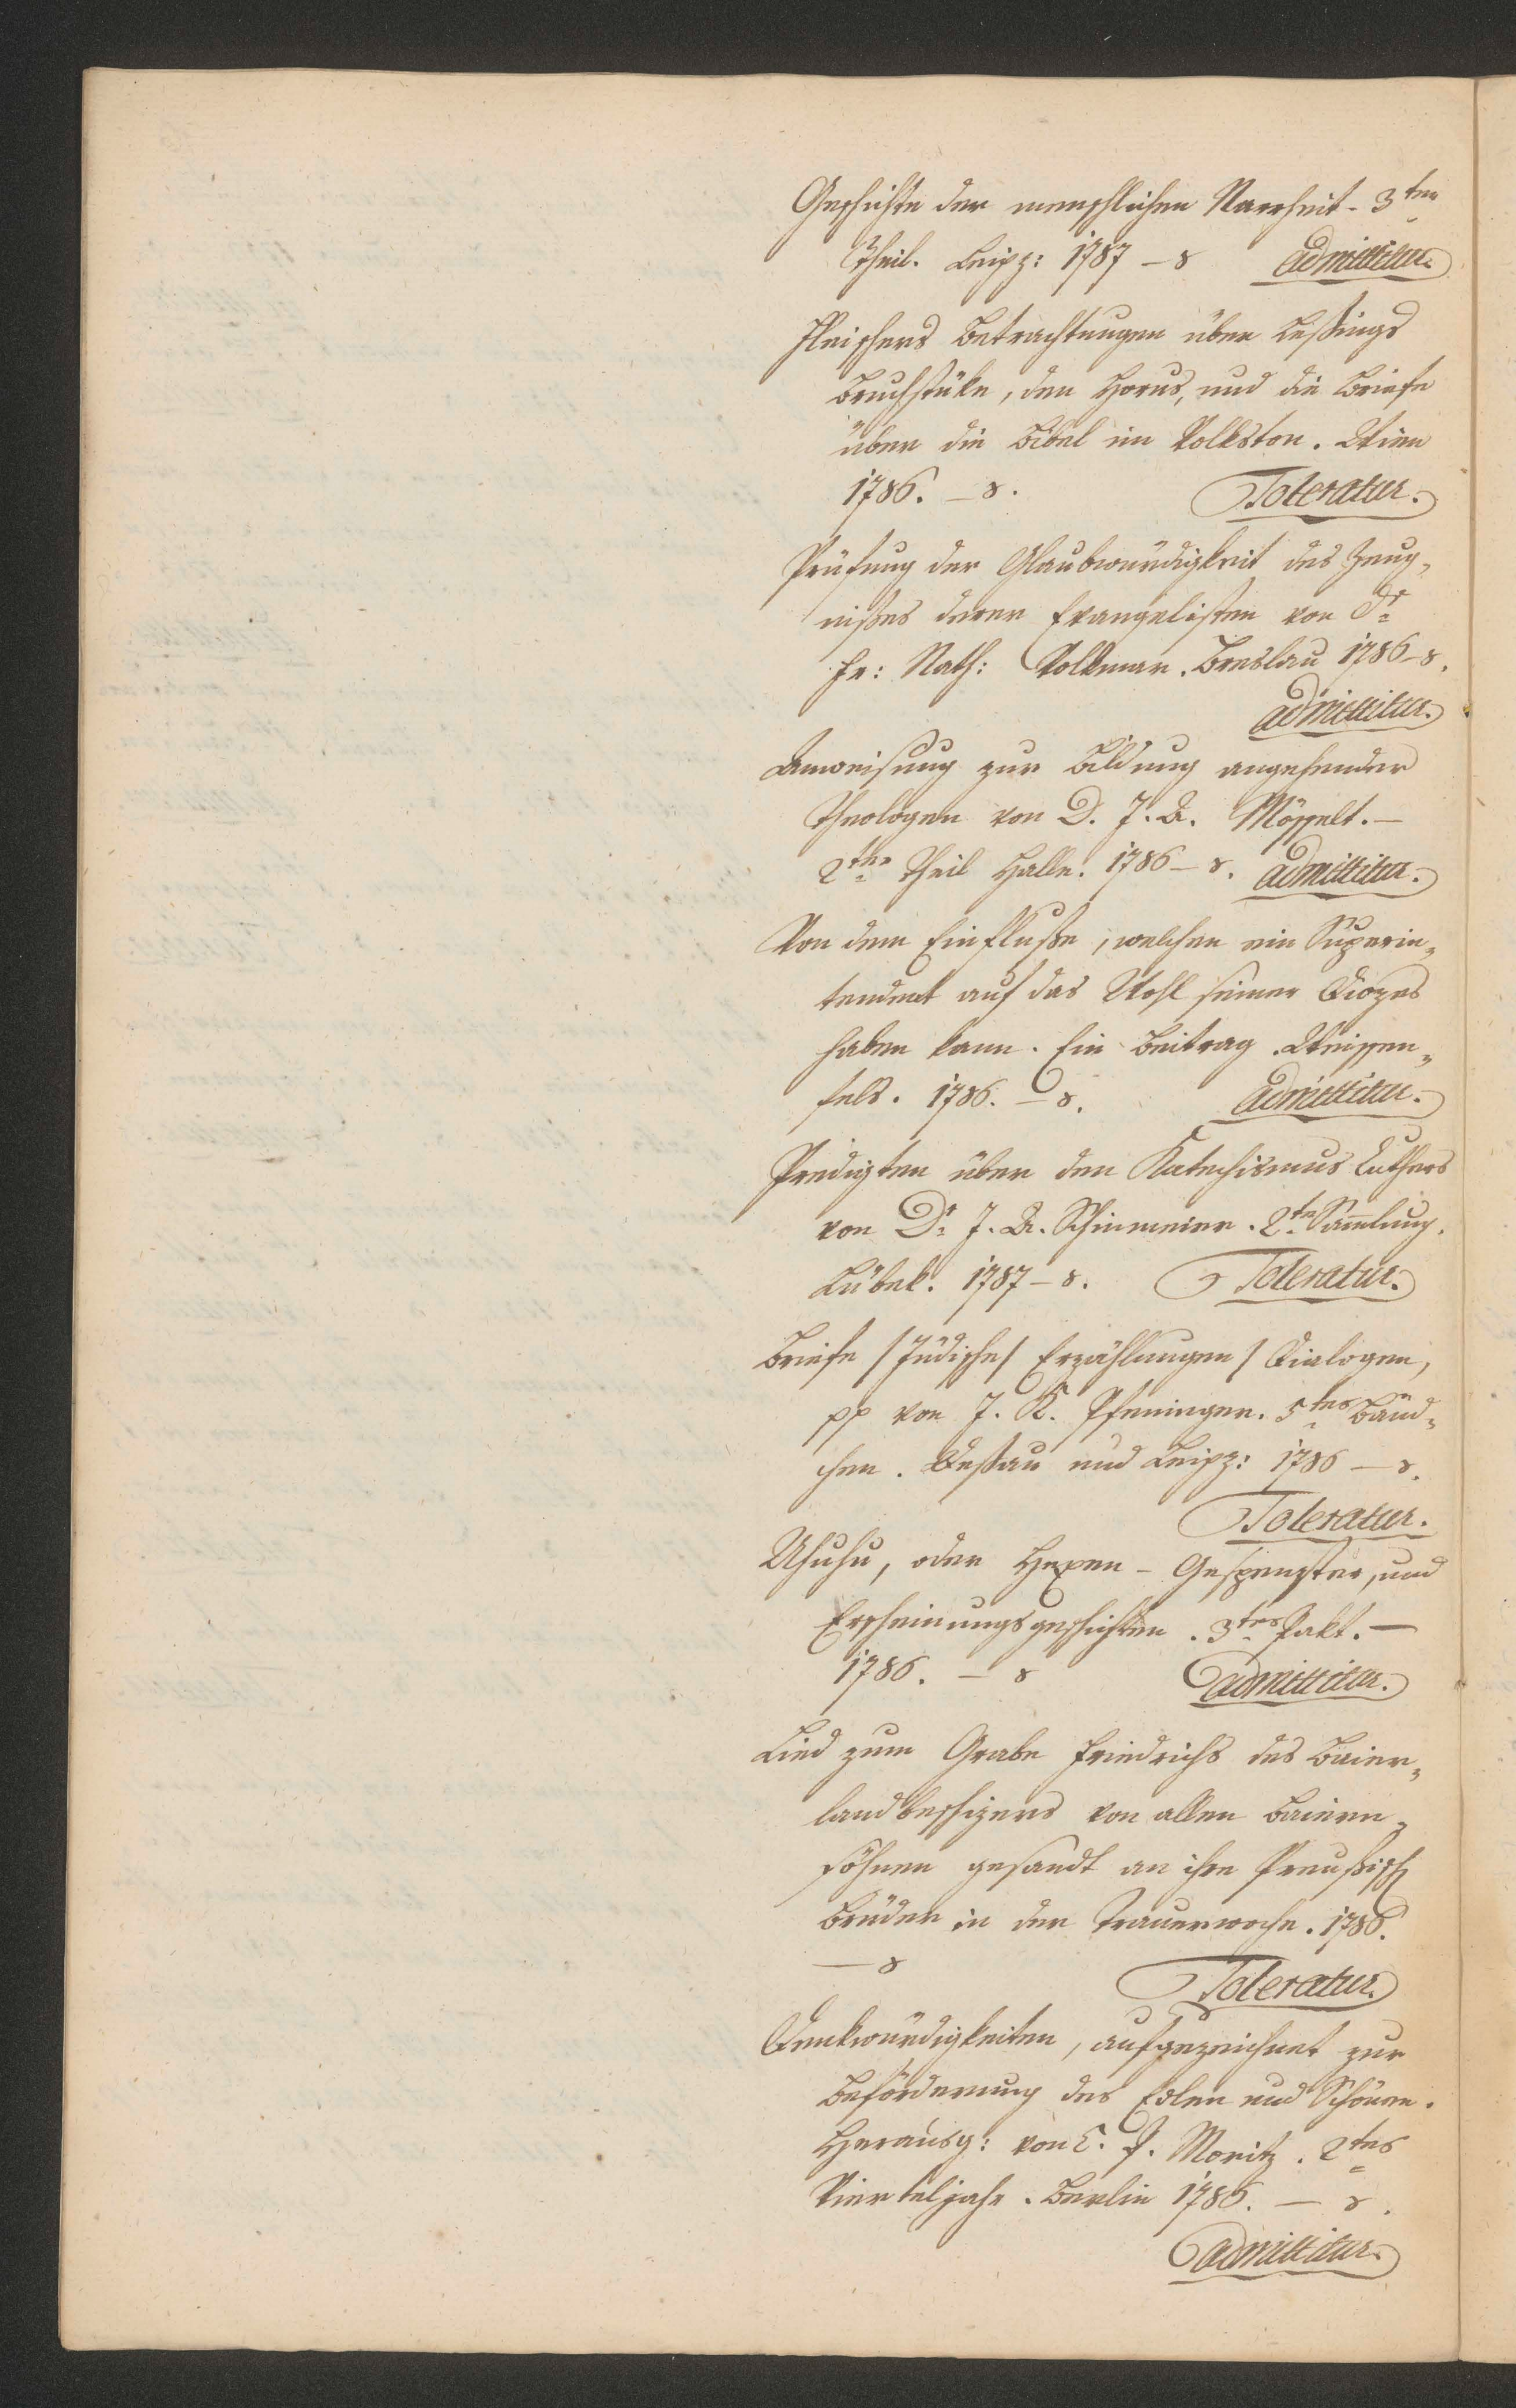 Geschichte der menschlichen Narrheit. 3ter
Theil. Leipz: 1787 – 8 admittitur.
Fleischers Betrachtungen über Leßings
Bruchstüke, den Horus, und die Briefe
über die Bibel im Volkston. Wien
1786. – 8. Toleratur.
Prüfung der Glaubwürdigkeit des Zeug„
nißes derer Evangelisten von Dr
Fr: Nath: Volkmar. Breslau 1786 – 8.
admittitur.
Anweisung zur Bildung angehender
Theologen von D. J. A. Nösselt. –
2ter Theil Halle. 1786 – 8. admittitur.
Von dem Einfluße, welchen ein Superin„
tendent auf das Wohl seiner Diozes
haben kann. Ein Beitrag. Weissen„
fels. 1786. – 8. admittitur.
Predigten über den Katechismus Luthers
von Dr J. A. Schinmeier. 2te Sam̄lung.
Lübek. 1787 – 8. Toleratur.
Briefe / Jüdische / Erzählungen / Dialogen,
pp von J. K. Pfenninger. 5tes Bänd„
chen. Deßau und Leipz: 1786 – 8.
Toleratur.
Uhuhu, oder Hexen – Gespenster, und
Erscheinungsgeschichten. 3tes Pakt. –
1786. – 8 admittitur.
Lied zum Grabe Friedrichs des Baier„
landbeschüzers von allen Baiern„
söhnen gesandt an ihre Preußisch
Brüder in der Trauerwoche. 1786.
– 8 Toleratur.
Denkwürdigkeiten, aufgezeichnet zur
Beförderung des Edlen und Schönen.
Herausg: von C. P. Moritz. 2tes
Vierteljahr. Berlin 1786. – 8.
admittitur.